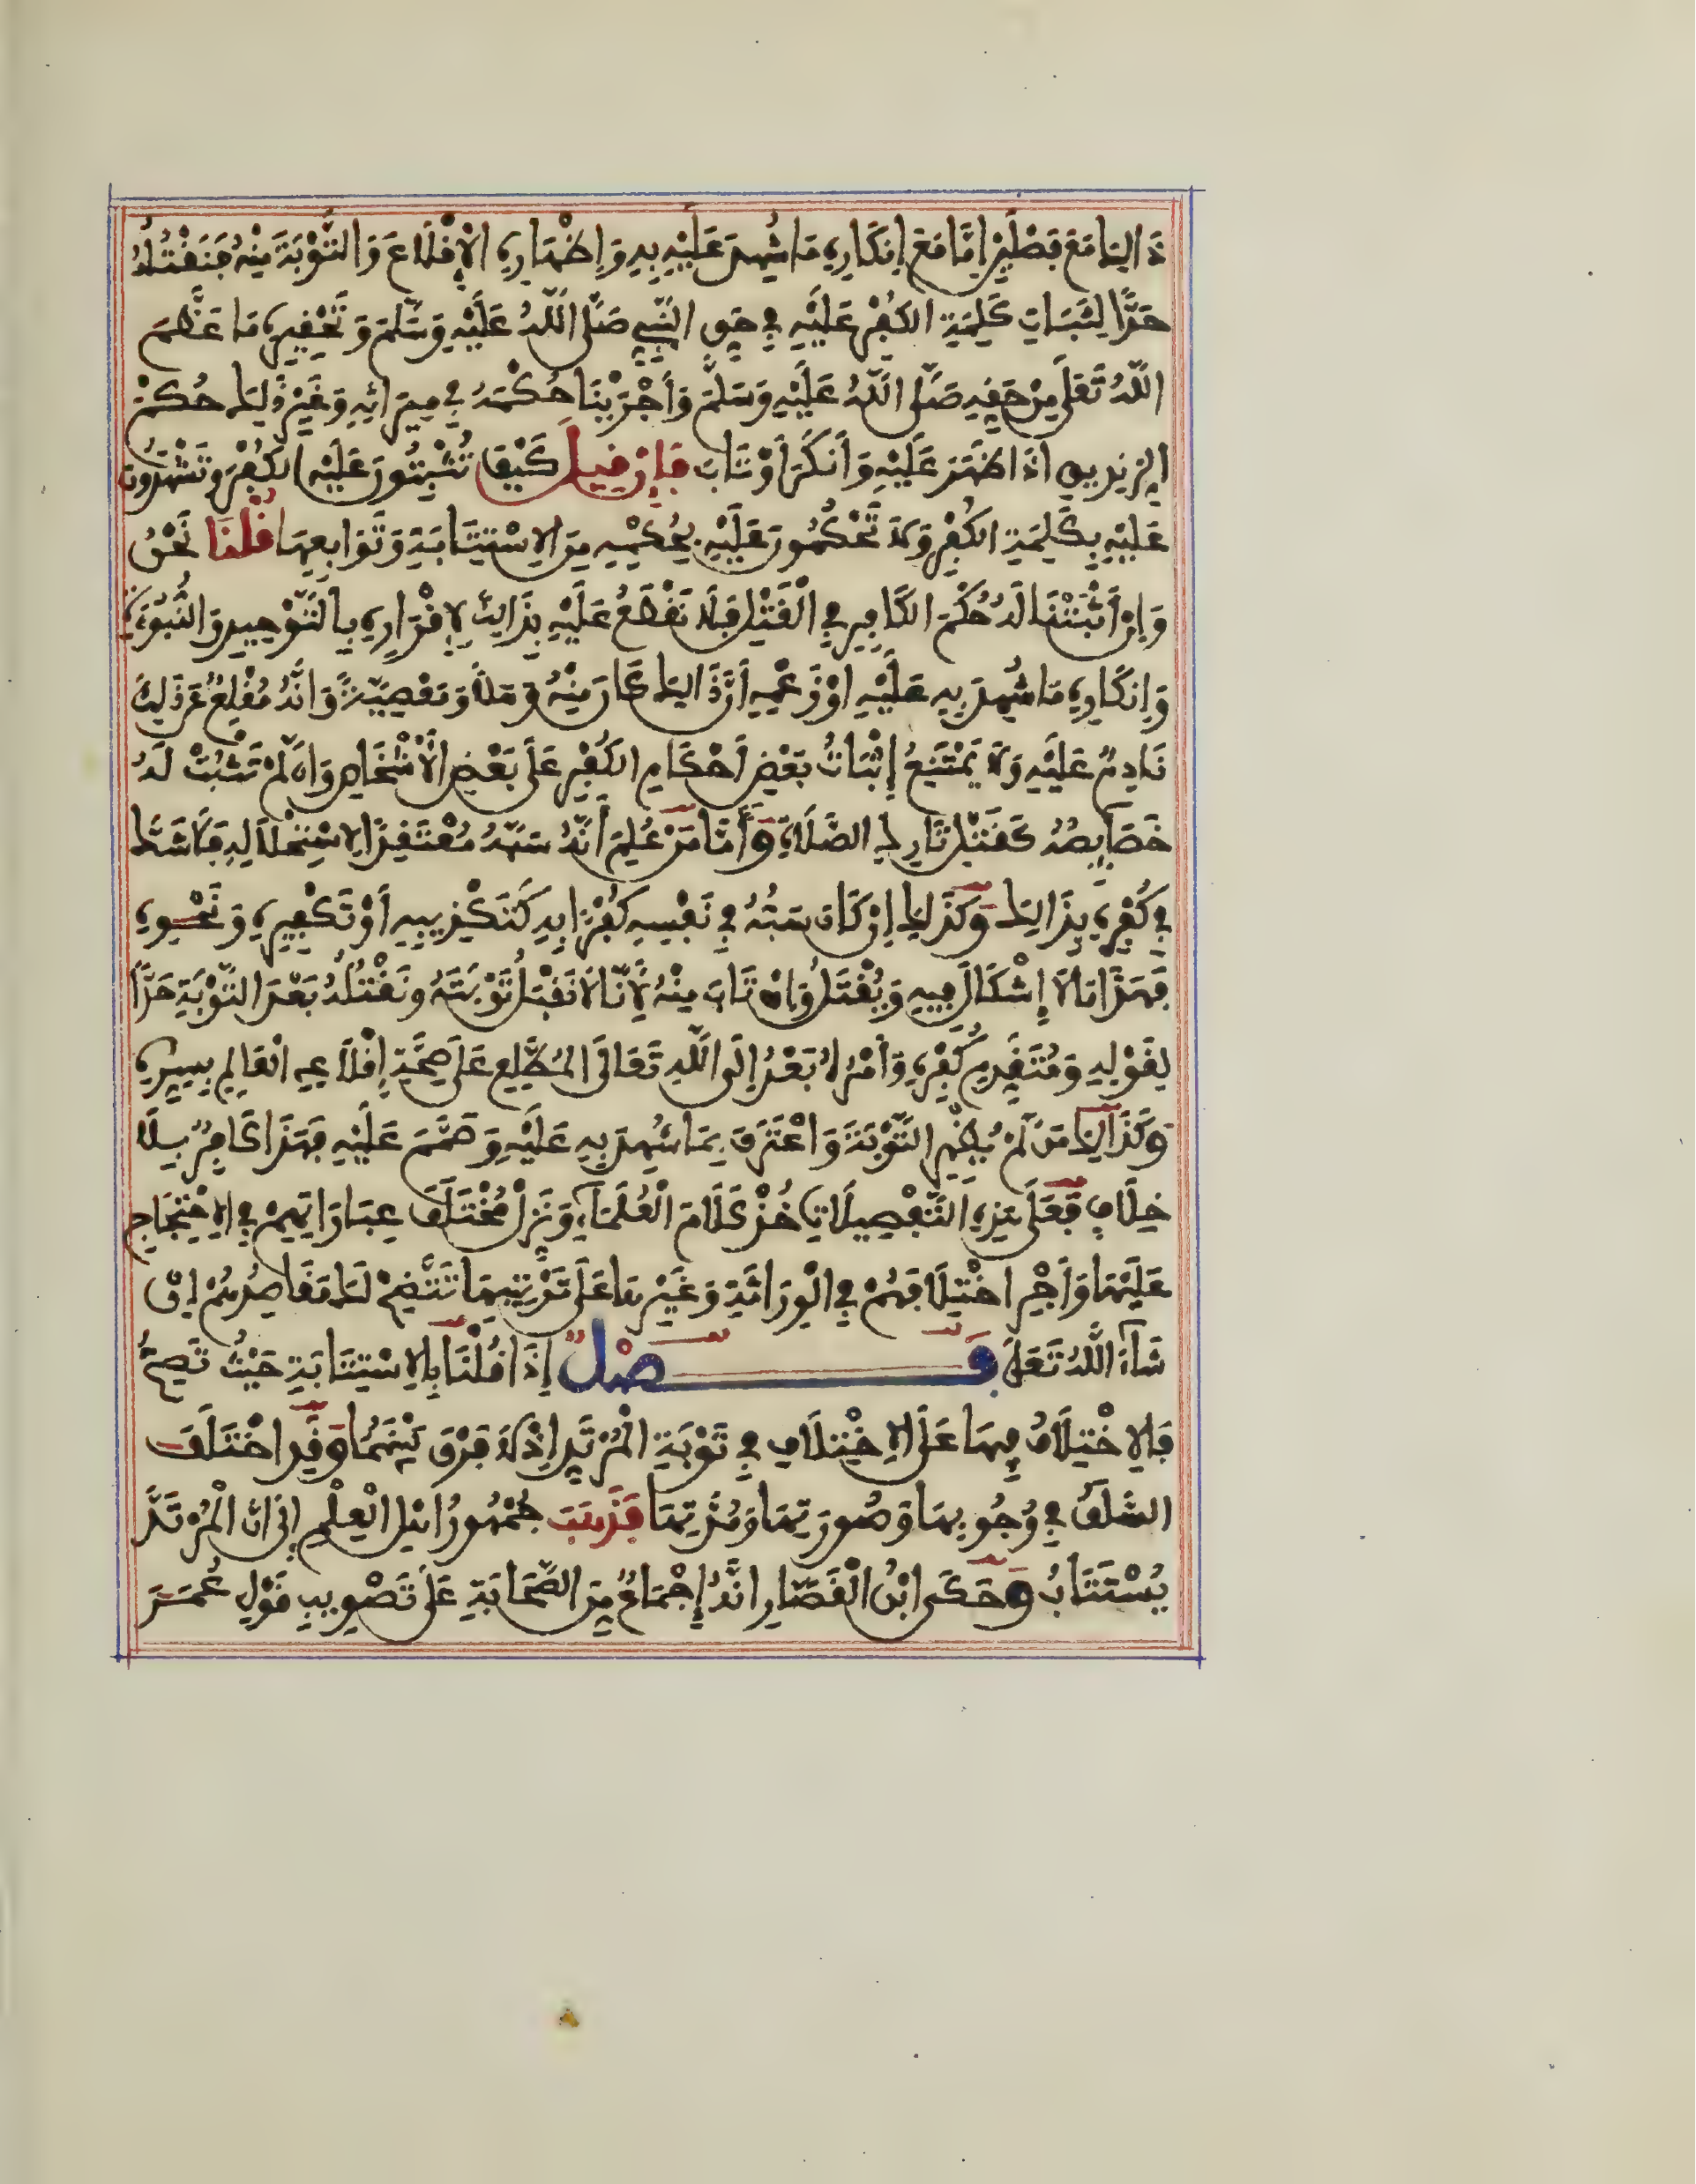 ذَالِكَ مَعَ فَصْلَيْنِ إِمَّا مَعَ إِنكَارِهِ مَا شُهِدَ عَلَيْهِ بِهِ وَإِظْهَارِهِ الْإِقْلَاعَ وَالتَّوْبَةَ مِنْهُ فَنَقْتُلُهُ
حَدًّا لِثَبَاتِ كَلِمَةِ الْكُفْرِ عَلَيْهِ فِي حَقِّ النَّبِيِّ صَلَّى اللَّهُ عَلَيْهِ وَسَلَّمَ وَتَحْقِيرِهِ مَا عَظَّمَ
اللَّهُ تَعَلَى مِنْ حَقِّهِ صَلَّى اللَّهُ عَلَيْهِ وَسَلَّمَ وَأَجْرَيْنَا حُكْمَهُ فِي مِيرَاثِهِ وَغَيْرِ ذَلِكَ حُكْمَ
الزِّنْدِيقِ إِذَا ظُهِرَ عَلَيْهِ وَأَنكَرَ أَوْ تَابَ فَإِن قِيلَ كَيْفَ تُثْبِتُونَ عَلَيْهِ الْكُفْرَ وَتَشْهَدُونَ
عَلَيْهِ بِكَلِمَةِ الْكُفْرِ وَلَا تَحْكُمُونَ عَلَيْهِ بِحُكْمِهِ مِنَ الِاسْتِتَابَةِ وَتَوَابِعِهَا قُلْنَا نَحْنُ
وَإِنْ أَثْبَتْنَا لَهُ حُكْمَ الْكَافِرِ فِي الْقَتْلِ فَلَا نَقْطَعُ عَلَيْهِ بِذَالِكَ لِإِقْرَارِهِ بِالتَّوْحِيدِ وَالنُّبُوَّةِ
وَإِنكَارِهِ مَا شُهِدَ بِهِ عَلَيْهِ أَوْ زَعْمِهِ أَنَّ ذَالِكَ كَانَ مِنْهُ وَهَلًا وَمَعْصِيَةً وَأَنَّهُ مُقْلِعٌ عَن ذَلِكَ
نَادِمٌ عَلَيْهِ وَلَا يَمْتَنِعُ إِثْبَاتُ بَعْضِ أَحْكَامِ الْكُفْرِ عَلَى بَعْضِ الْأَشْخَاصِ وَإِن لَّمْ تَثْبُتْ لَهُ
خَصَائِصُهُ كَقَتْلِ تَارِكِ الصَّلَاةِ وَأَمَّا مَنْ عُلِمَ أَنَّهُ سَبَّهُ مُعْتَقِدًا لِاسْتِحْلَالِهِ فَلَا شَكَّ
فِي كُفْرِهِ بِذَالِكَ وَكَذَلِكَ إِنْ كَانَ سَبُّهُ فِي نَفْسِهِ كُفْرًا بِهِ كَتَكْذِيبِهِ أَوْ تَكْفِيرِهِ وَنَحْوِهِ
فَهَذَا مَا لَا إِشْكَالَ فِيهِ وَيُقْتَلُ وَإِن تَابَ مِنْهُ لِأَنَّا لَا نَقْبَلُ تَوْبَتَهُ وَنَقْتُلُهُ بَعْدَ التَّوْبَةِ حَدًّا
لِقَوْلِهِ وَمُتَقَدِّمِ كُفْرِهِ وَأَمْرُهُ بَعْدُ إِلَى اللَّهِ تَعَالَى الْمُطَّلِعِ عَلَى صِحَّةِ إِقْلَاعِهِ الْعَالِمِ بِسِرِّهِ
وَكَذَالِكَ مَن لَّمْ يُظْهِرِ التَّوْبَةَ وَاعْتَرَفَ بِمَا شُهِدَ بِهِ عَلَيْهِ وَصَمَّمَ عَلَيْهِ فَهَذَا كَافِرٌ بِلَا
خِلَافٍ فَعَلَى هَذِهِ التَّفْصِيلَاتِ خُذْ كَلَامَ الْعُلَمَاءِ وَنَزِّلْ مُخْتَلَفَ عِبَارَاتِهِمْ فِي الِاحْتِجَاجِ
عَلَيْهَا وَأَجْرِ اخْتِلَافَهُمْ فِي الْوِرَاثَةِ وَغَيْرِهَا عَلَى تَرْتِيبِهَا تَتَّضِحْ لَكَ مَقَاصِدُهُمْ إِن
شَاءَ اللَّهُ تَعَلَى فَصْلٌ إِذَا قُلْنَا بِالِاسْتِتَابَةِ حَيْثُ تَصِحُّ
فَالِاخْتِلَافُ فِيهَا عَلَى الِاخْتِلَافِ فِي تَوْبَةِ الْمُرْتَدِّ إِذْ لَا فَرْقَ بَيْنَهُمَا وَقَدِ اخْتَلَفَ
السَّلَفُ فِي وُجُوبِهَا وَصُورَتِهَا وَمُدَّتِهَا فَذَهَبَ جُمْهُورُ أَهْلِ الْعِلْمِ إِلَى أَنَّ الْمُرْتَدَّ
يُسْتَتَابُ وَحَكَى ابْنُ الْقَصَّارِ أَنَّهُ إِجْمَاعٌ مِنَ الصَّحَابَةِ عَلَى تَصْوِيبِ قَوْلِ عُمَرَ